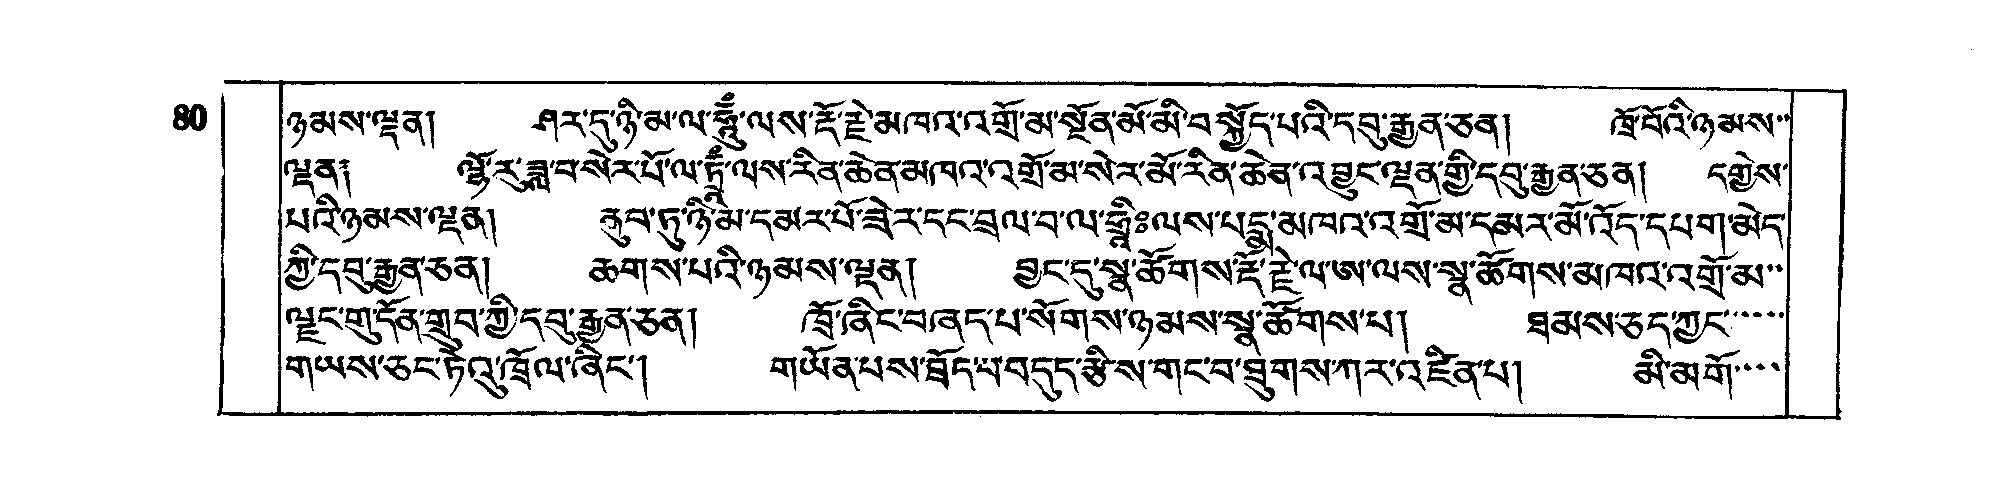 80 ཉམས་ལྡན། ཤར་དུ་ཉི་མ་ལ་ཧཱུྃ་ལས་རྡོ་རྗེ་མཁའ་འགྲོ་མ་སྔོན་མོ་མི་བསྐྱོད་པའི་དབུ་རྒྱན་ཅན། ཁྲོ་བོའི་ཉམས་་
ལྡན༔ ལྷོ་རུ་ཟླ་བ་སེར་པོ་ལ་ཏྲཱྃ་ལས་རིན་ཆེན་མཁའ་འགྲོ་མ་སེར་མོ་རིན་ཆེན་འབྱུང་ལྡན་གྱི་དབུ་རྒྱན་ཅན། དགྱེས་
པའི་ཉམས་ལྡན། ནུབ་ཏུ་ཉི་མ་དམར་པོ་ཟེར་དང་བྲལ་བ་ལ་ཧྲཱིཿལས་པདྨ་མཁའ་འགྲོ་མ་དམར་མོ་འོད་དཔག་མེད་
ཀྱི་དབུ་རྒྱན་ཅན། ཆགས་པའི་ཉམས་ལྡན། བྱང་དུ་སྣ་ཚོགས་རྡོ་རྗེ་ལ་ཨ་ལས་སྣ་ཚོགས་མཁའ་འགྲོ་མ་་
ལྗང་གུ་དོན་གྲུབ་ཀྱི་དབུ་རྒྱན་ཅན། ཁྲོ་ཞིང་བཞད་པ་སོགས་ཉམས་སྣ་ཚོགས་པ། ཐམས་ཅད་ཀྱང་་་་་་
གཡས་ཅང་ཏེའུ་ཁྲོལ་ཞིང་། གཡོན་པས་ཐོད་པ་བདུད་རྩིས་གང་བ་ཐུགས་ཀར་འཛིན་པ། མི་མགོ་་་་་